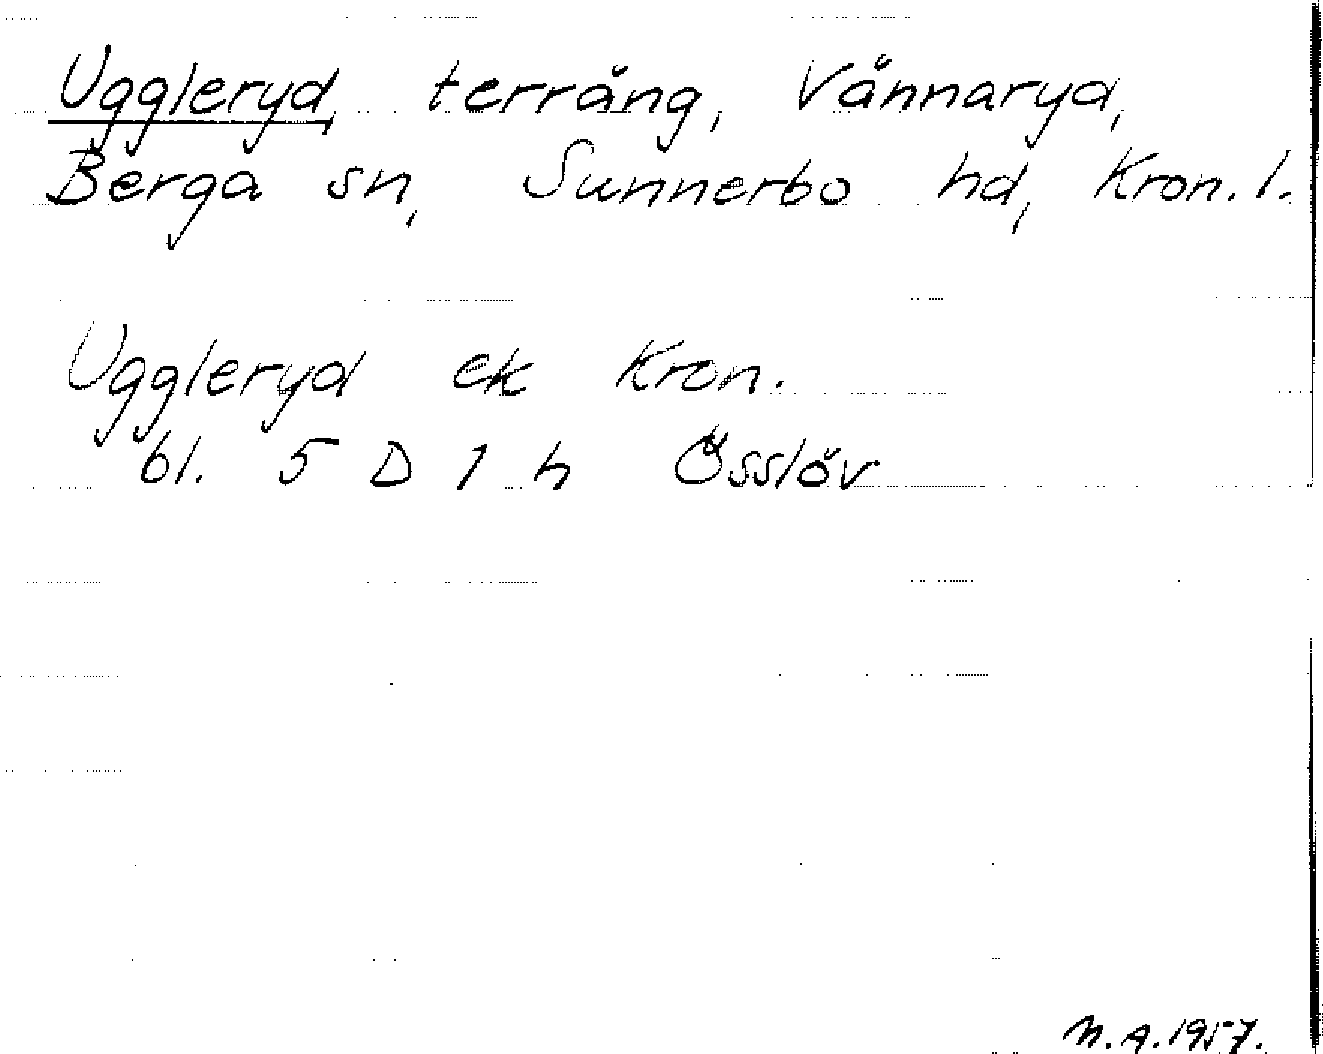 Uggleryd, terräng, Vännaryd,
Berga sn, Sunnerbo hd, Kron. l.
Uggleryd ek Kron.
bl. 5 D 1 h Össlöv
N.A.1957.